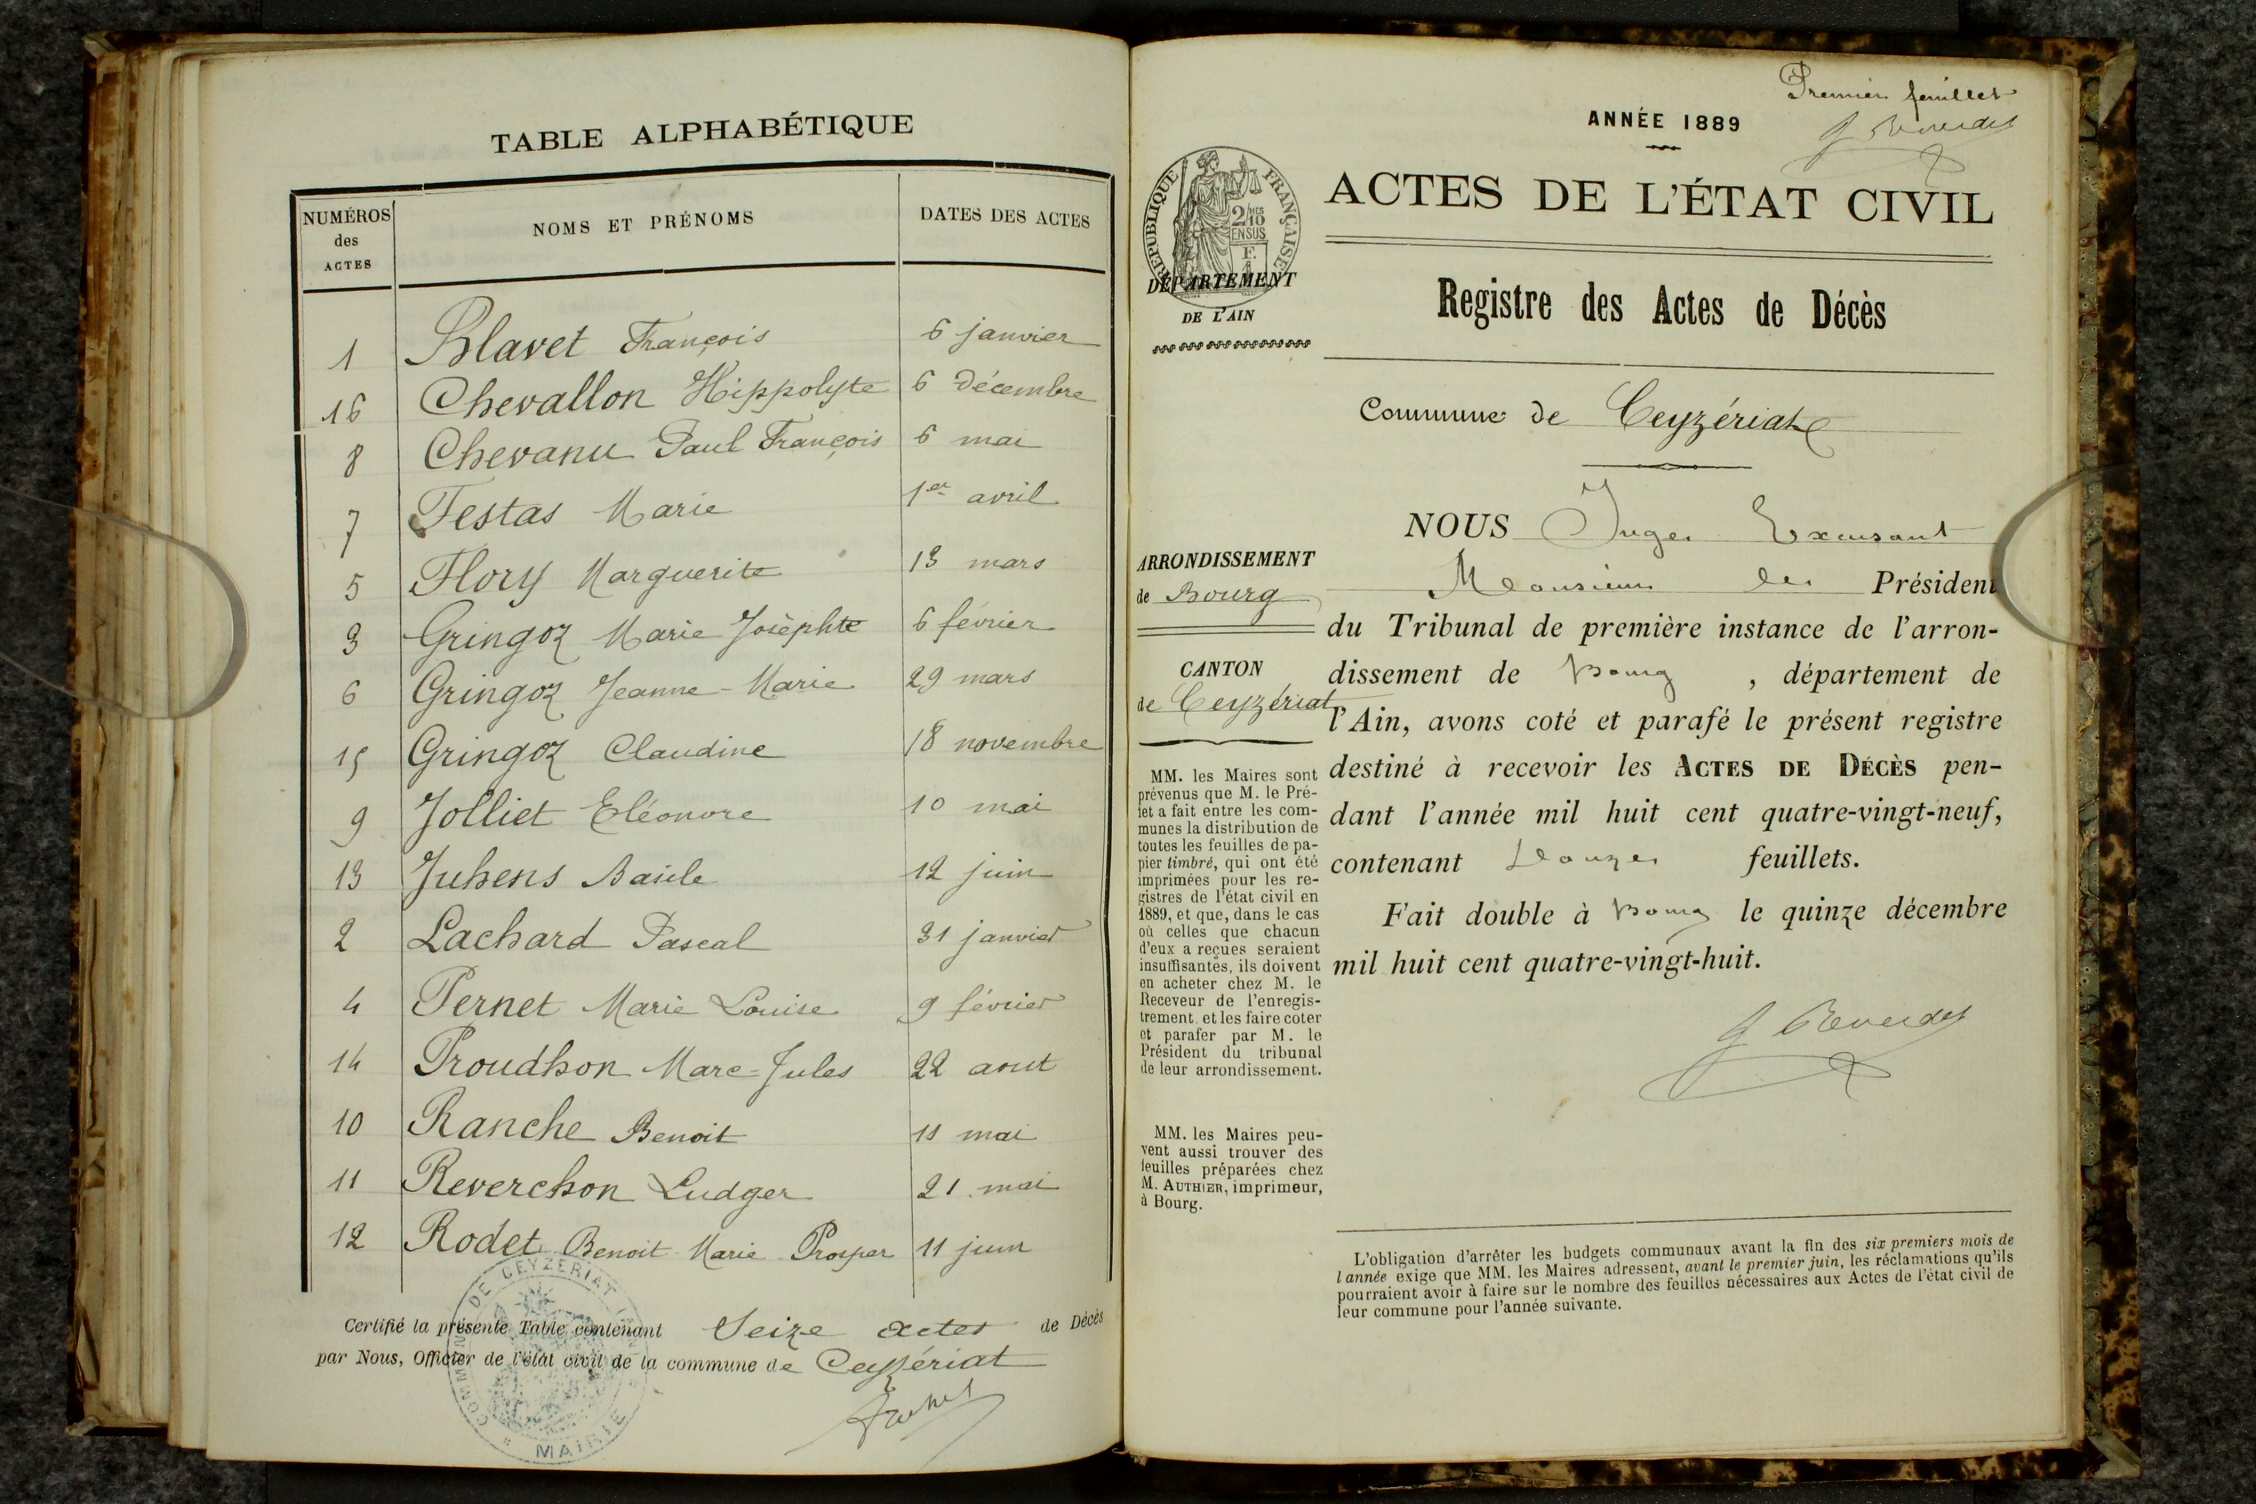 TABLE ALPHABÉTIQUE
NUMÉROS des ACTES NOMS ET PRÉNOMS DATES DES ACTES
1 Blavet François 6 janvier
16 Chevallon Hippolyte 6 décembre
8 Chevanu Paul François 6 mai
7 Festas Marie 1er avril
5 Flory Marguerite 13 mars
3 Gringoz Marie Josèphte 6 février
6 Gringoz Jeanne-Marie 29 mars
15 Gringoz Claudine 18 novembre
9 Jolliet Eléonore 10 mai
13 Juhens Basile 12 juin
2 Lachard Pascal 31 janvier
4 Pernet Marie Louise 9 février
14 Proudhon Marc-Jules 22 aout
10 Ranche Benoit 11 mai
11 Reverchon Ludger 21 mai
12 Rodet Benoit Marie Prosper 11 juin
Certifié la présente Table contenant Seize actes de Décès
par Nous, Officier de l'état civil de la commune de Ceyzériat
COMMUNE DE CEYZERIAT
MAIRIE
Premier feuillet
ANNÉE 1889
RÉPUBLIQUE FRANÇAISE
2/10MES
EN SUS
DÉPARTEMENT
DE L'AIN
ACTES DE L'ÉTAT CIVIL
Registre des Actes de Décès
Commune de Ceyzériat
ARRONDISSEMENT
de Bourg
CANTON
de Ceyzériat
MM. les Maires sont
prévenus que M. le Pré-
fet a fait entre les com-
munes la distribution de
toutes les feuilles de pa-
pier timbré, qui ont été
imprimées pour les re-
gistres de l'état civil en
1889, et que, dans le cas
où celles que chacun
d'eux a reçues seraient
insuffisantes, ils doivent
en acheter chez M. le
Receveur de l'enregis-
trement et les faire coter
et parafer par M. le
Président du tribunal
de leur arrondissement.
MM. les Maires peu-
vent aussi trouver des
feuilles préparées chez
M. AUTHIER, imprimeur,
à Bourg.
NOUS Juge Excusant
Monsieur le Président
du Tribunal de première instance de l'arron-
dissement de Bourg, département de
l'Ain, avons coté et parafé le présent registre
destiné à recevoir les ACTES DE DÉCÈS pen-
dant l'année mil huit cent quatre-vingt-neuf,
contenant Douze feuillets.
Fait double à Bourg le quinze décembre
mil huit cent quatre-vingt-huit.
L'obligation d'arrêter les budgets communaux avant la fin des six premiers mois de
l'année exige que MM. les Maires adressent, avant le premier juin, les réclamations qu'ils
pourraient avoir à faire sur le nombre des feuilles nécessaires aux Actes de l'état civil de
leur commune pour l'année suivante.